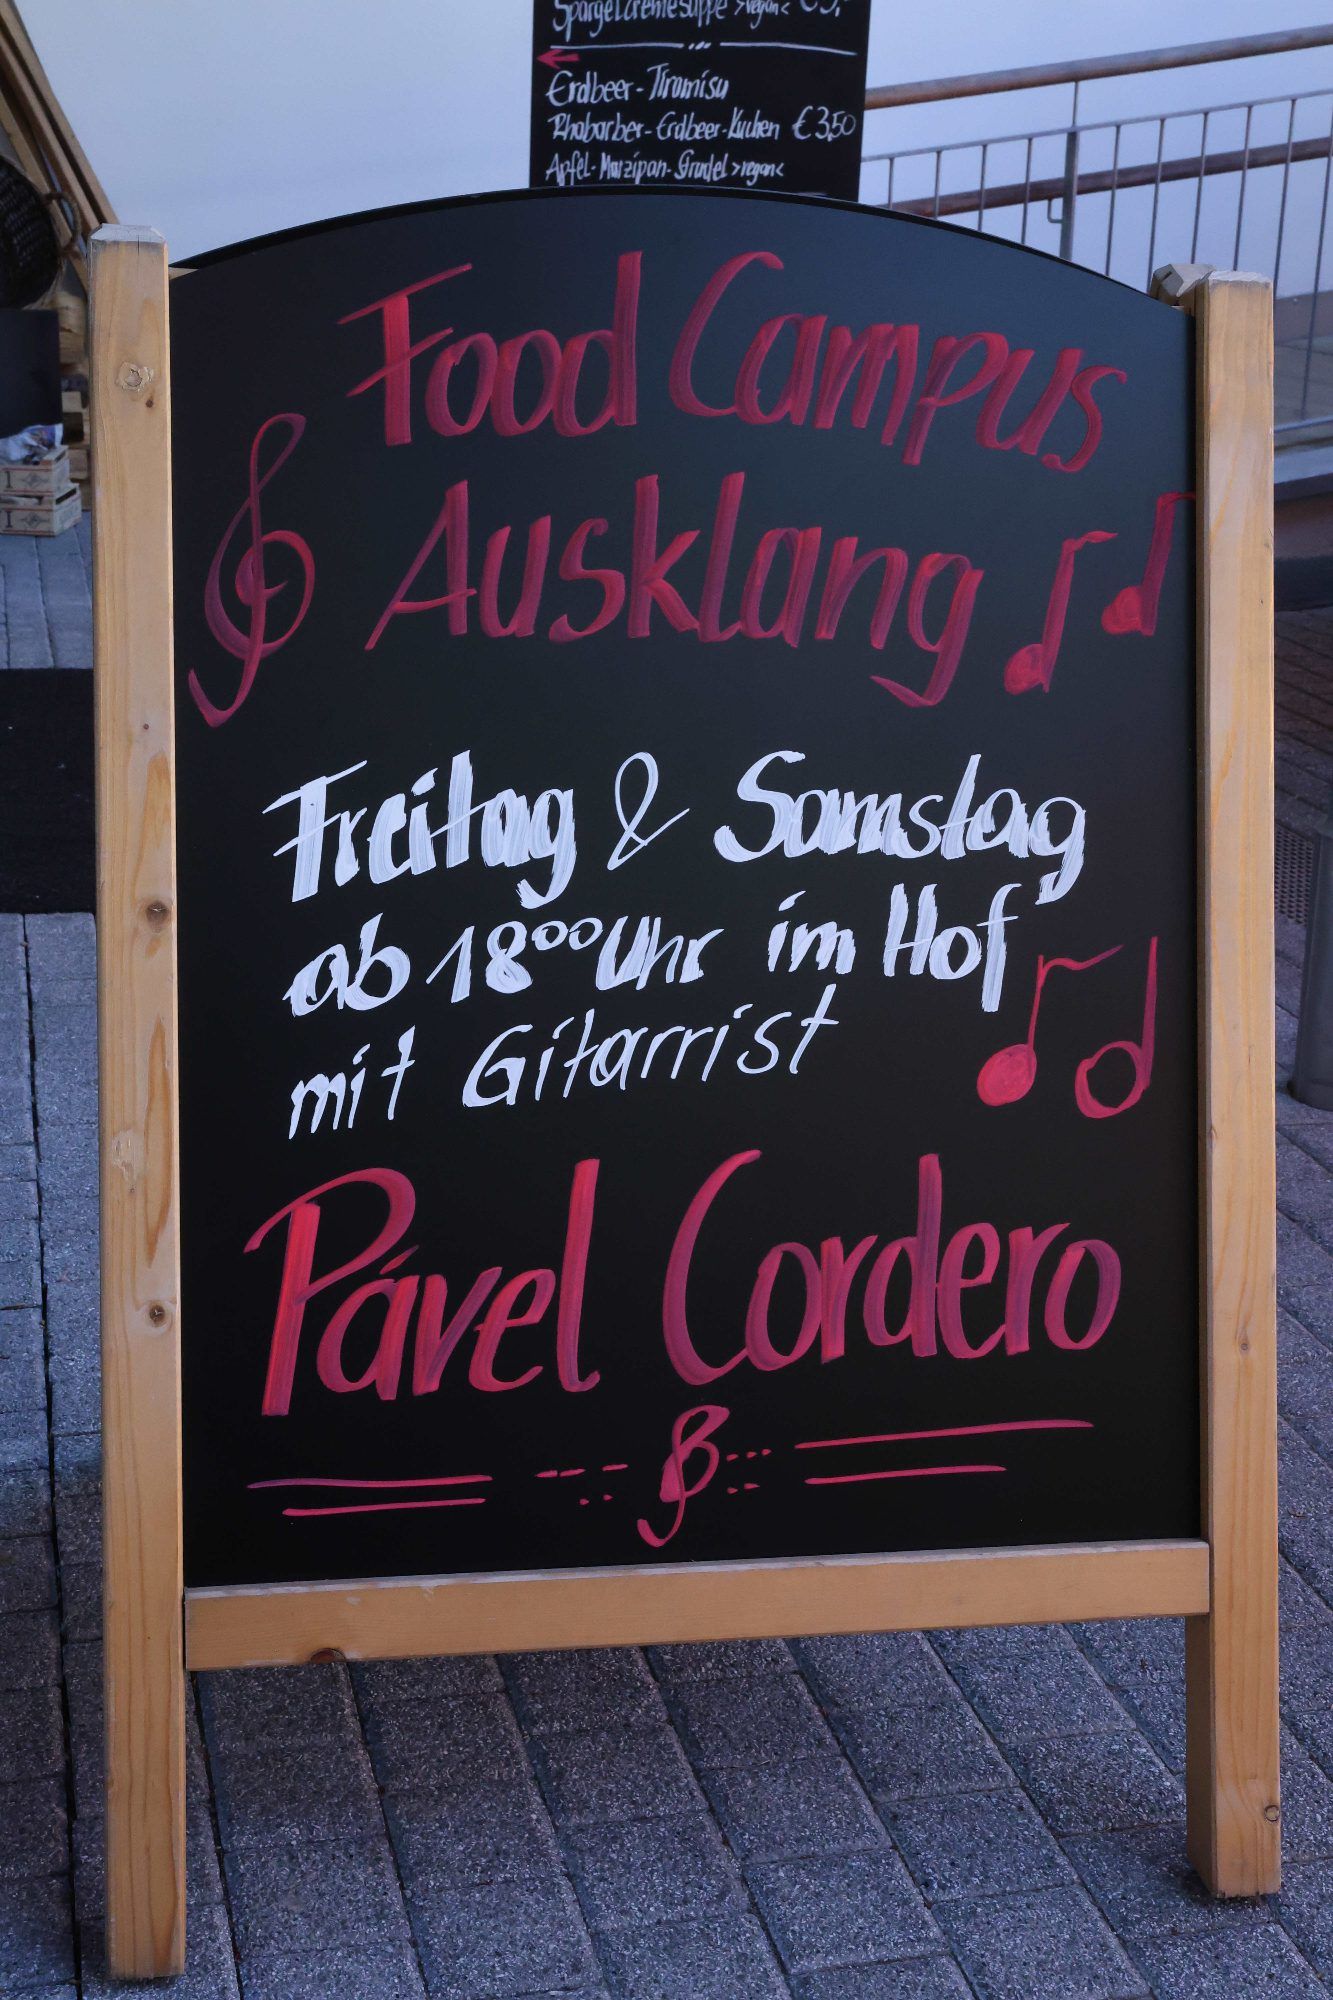 Spargelcremesuppe >vegan<
Erdbeer-Tiramisu
Rhabarber-Erdbeer-Kuchen €3,50
Apfel-Marzipan-Strudel >vegan<
Food Campus
Ausklang
Freitag & Samstag
ab 18⁰⁰ Uhr im Hof
mit Gitarrist
Pável Cordero